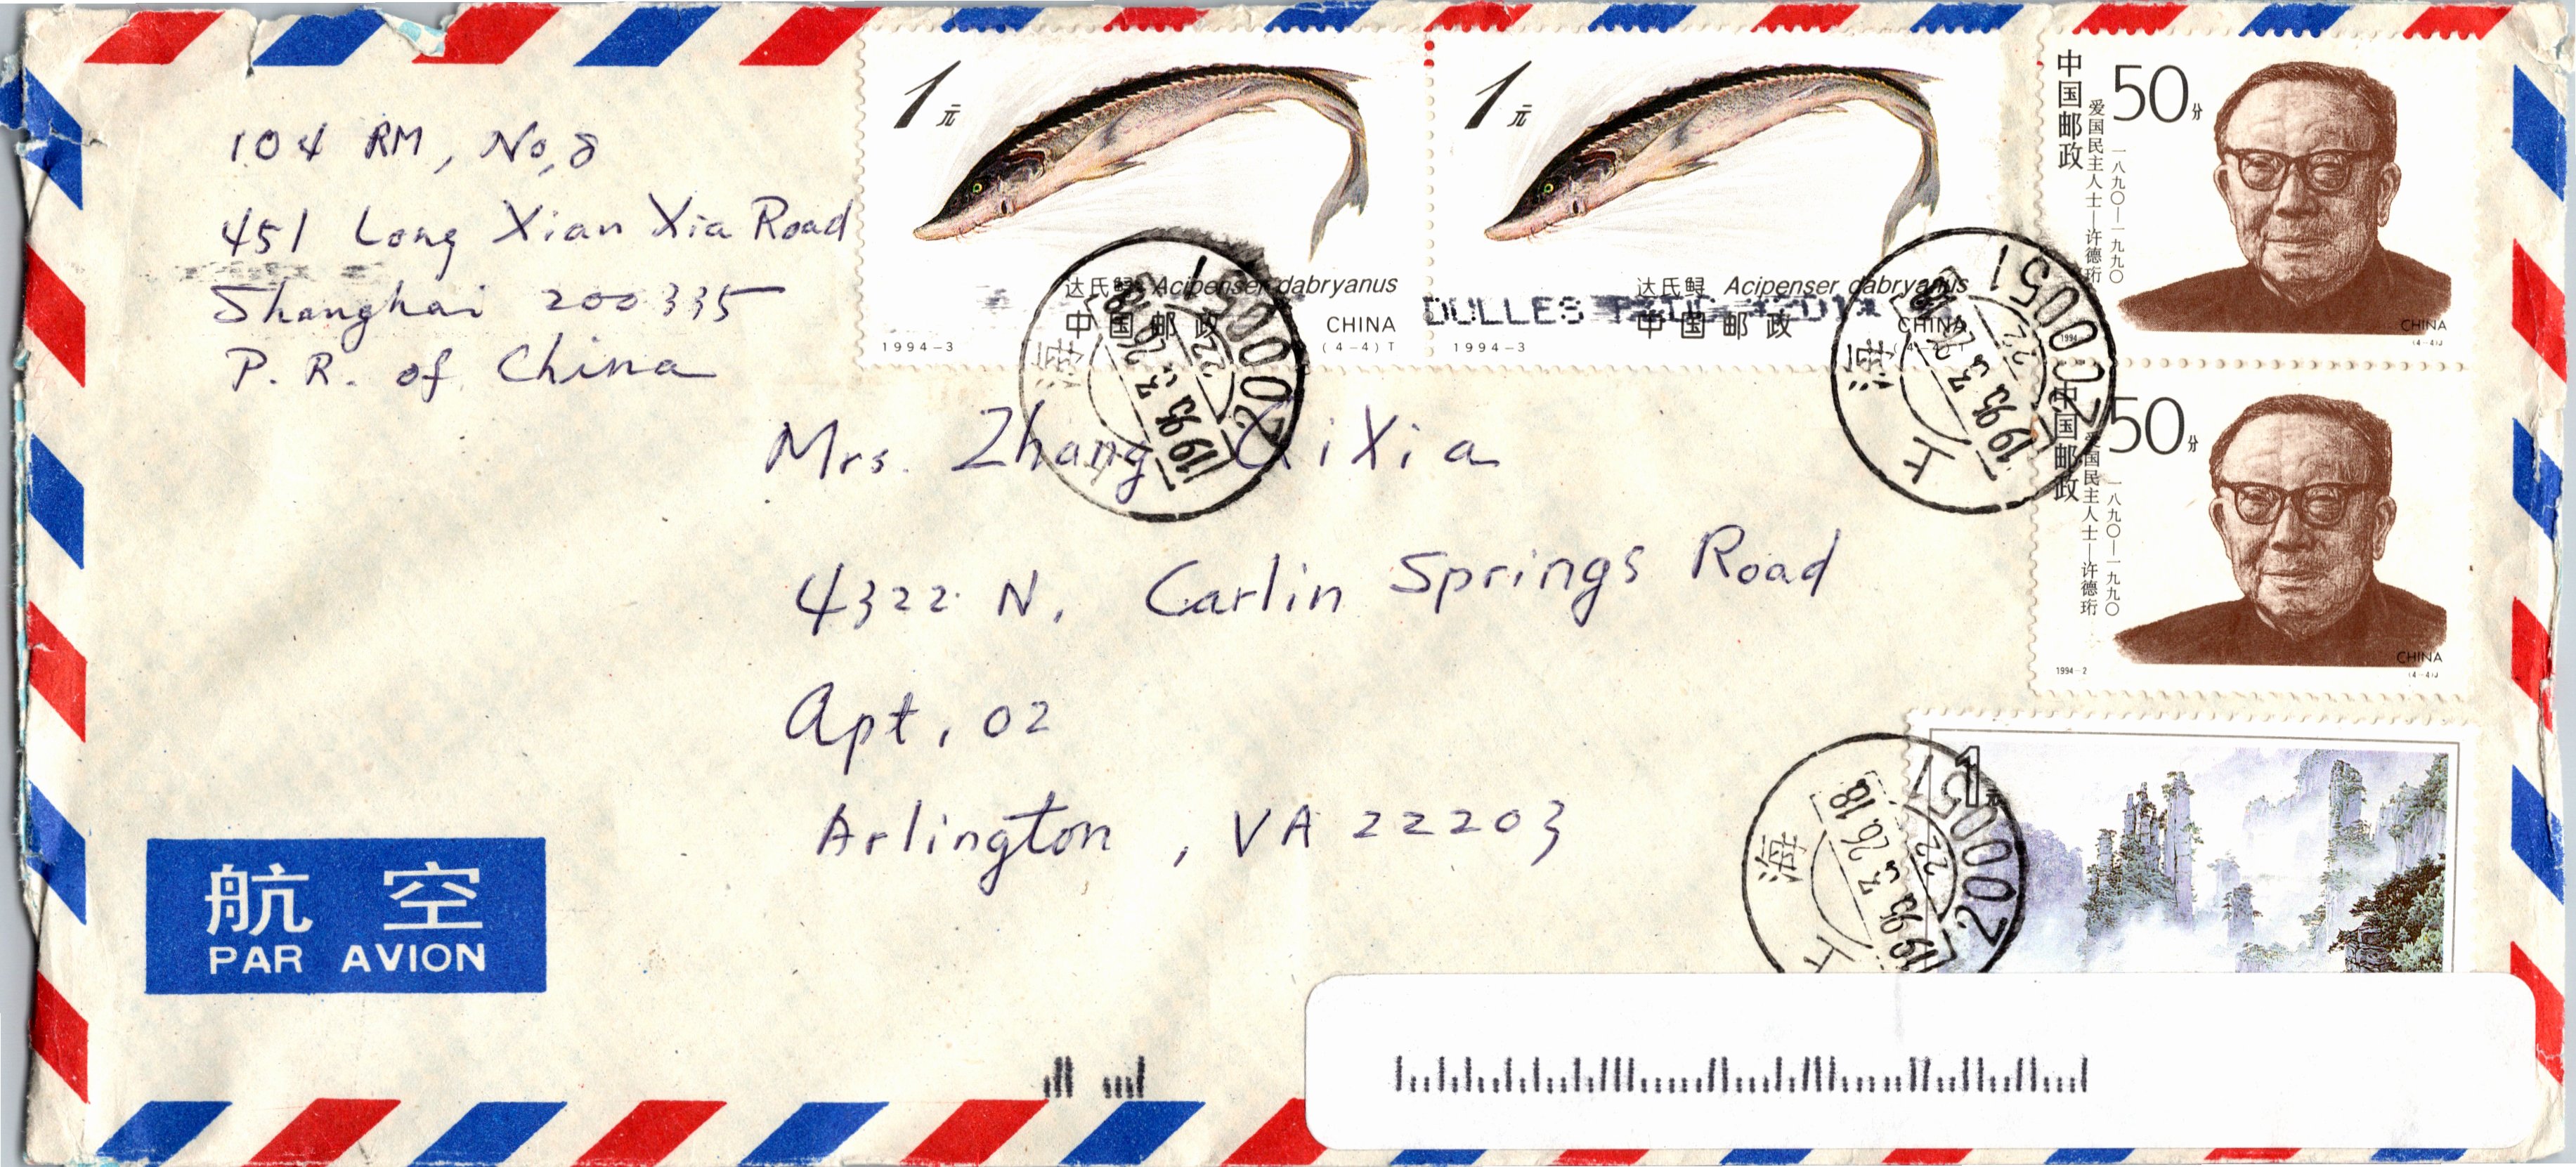 104 RM, No, 8
451 Long Xian Xia Road
Shanghai 200335
P. R. of China
1元
达氏鲟 Acipenser dabryanus
中国邮政 CHINA
1994-3 (4-4) T
1元
达氏鲟 Acipenser dabryanus
中国邮政 CHINA
1994-3 (4-4) T
DULLES
中国邮政
50分
爱国民主人士—许德珩
一八九〇—一九九〇
CHINA
1994 (4-4)J
中国邮政
50分
爱国民主人士—许德珩
一八九〇—一九九〇
CHINA
1994-2 (4-4)J
上海
1995.3.26.18
22
200051
上海
1995.3.26.18
22
200051
Mrs. Zhang QiXia
4322 N. Carlin Springs Road
Apt, 02
Arlington, VA 22203
1元
上海
1995.3.26.18
22
200051
航空
PAR AVION